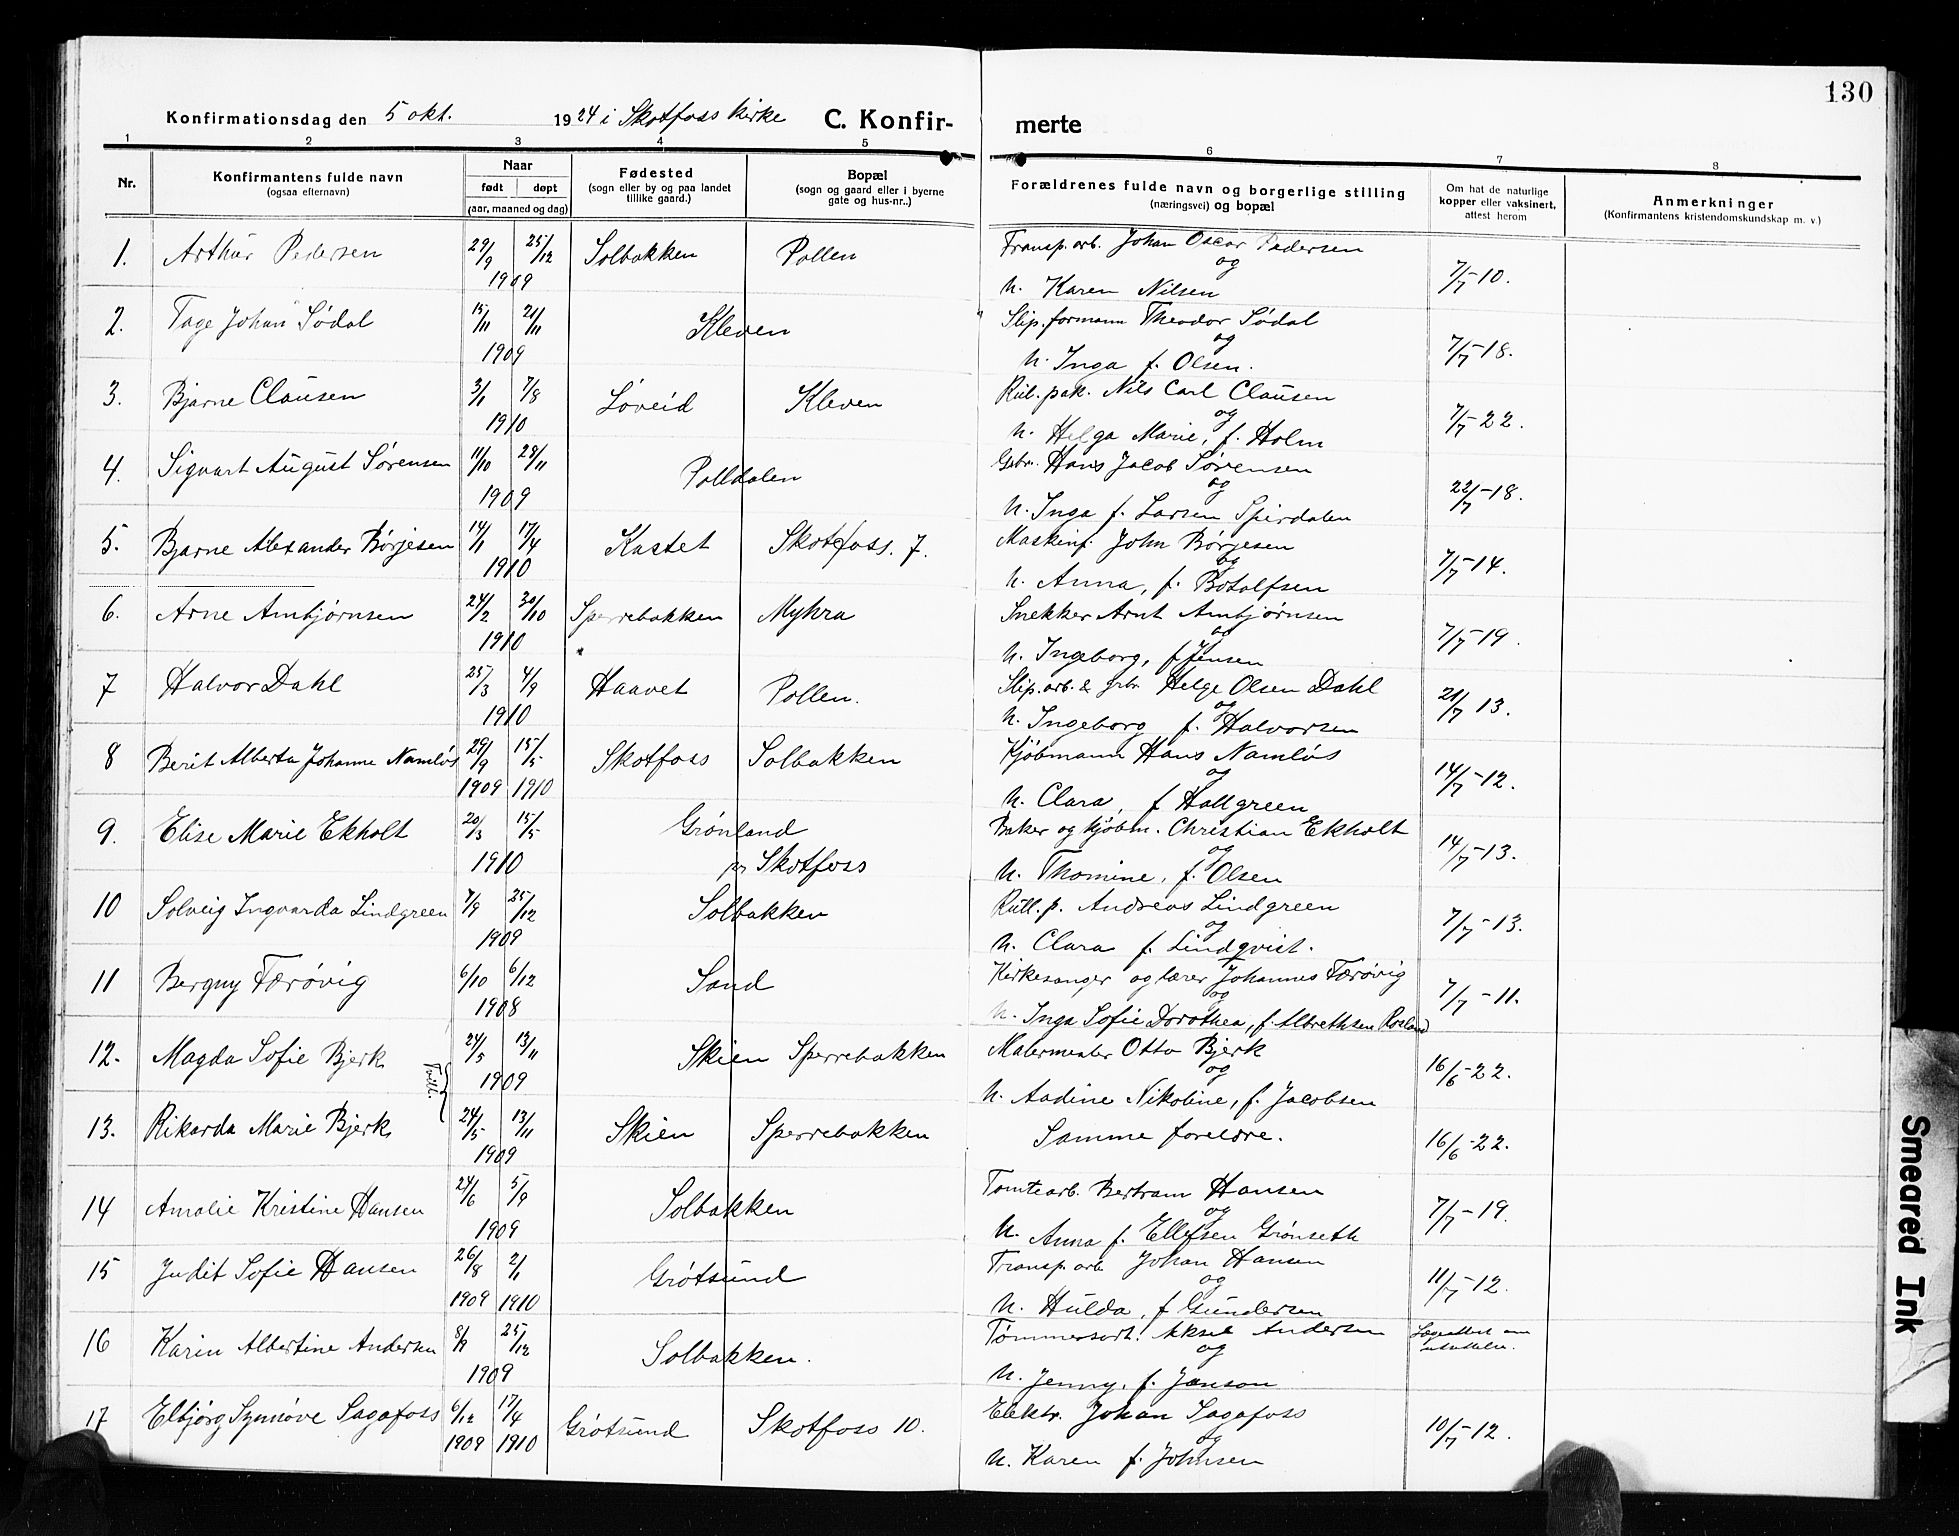 130
Konfirmationsdag den 5 okt. 1924 i Skotfoss kirke C. Konfir- merte
1 2 3 4 5 6 7 8
Nr. Konfirmantens fulde navn (ogsaa efternavn) Naar født døpt (aar, maaned og dag) Fødested (sogn eller by og paa landet tillike gaard.) Bopæl (sogn og gaard eller i byerne gate og hus-nr..) Forældrenes fulde navn og borgerlige stilling (næringsvei) og bopæl Om hat de naturlige kopper eller vaksinert, attest herom Anmerkninger (Konfirmantens kristendomskundskap m. v.)
1. Arthur Pedersen 29/9 25/12 Solbakken Pollen Transp. arb. Johan Oscar Pedersen
og
1909 h. Karen Nilsen 7/7-10.
2. Tage Johan Sødal 15/11 21/11 Kleven Slip. formann Theodor Sødal
og
1909 h. Inga f. Olsen. 7/7-18.
3. Bjarne Clausen 3/1 7/8 Løveid Kleven Rul. pak. Nils Carl Clausen
og
1910 h. Helga Marie, f. Holm 7/7-22.
4. Sigvart August Sørensen 11/10 28/11 Polldalen Grbr. Hans Jacob Sørensen
og
1909 h. Inga f. Larsen Spirdalen 22/7-18.
5. Bjarne Alexander Børjesen 14/1 17/4 Kastet Skotfoss. 7. Maskinf. John Børjesen
og
1910 h. Anna, f. Botolfsen 7/7-14.
6. Arne Ambjørnsen 24/2 30/10 Sperrebakken Myhra Snekker Arnt Ambjørnsen
og
1910 h. Ingeborg, f Jensen 7/7-19.
7 Halvor Dahl 25/3 4/9 Haavet Pollen. Slip. arb. & grbr. Helge Olsen Dahl
og
1910 h. Ingeborg f. Halvorsen 21/7 13.
8 Berit Alberta Johanne Namløs 29/9 15/5 Skotfoss Solbakken Kjøbmann Hans Namløs
og
1909 1910 h. Clara, f Hallgreen 14/7-12.
9. Elise Marie Ekholt 20/3 15/5 Grønland Baker og kjøbm. Christian Ekholt
og
1910 pr Skotfoss h. Thomine, f. Olsen 14/7-13.
10 Solveig Ingvarda Lindgreen 7/9 25/12 Solbakken Rull. p. Andreas Lindgreen
og
1909 h. Clara f. Lindqvist. 7/7-13.
11 Bergny Færøvig 6/10 6/12 Sand Kirkesanger og lærer Johannes Færøvig
og
1908 h. Inga Sofie Dorothea, f. Albrethsen Rosland 7/7-11.
12. Magda Sofie Bjerk 24/5 13/11 Skien Sperrebakken Malermester Otto Bjerk
og
Tvill. 1909 h. Aadine Nikoline, f. Jacobsen 16/6-22.
13. Rikarda Marie Bjerk 24/5 13/11 Skien Sperrebakken Samme foreldre. 16/6-22.
1909
14 Amalie Kristine Hansen 24/6 5/9 Solbakken Tomtearb. Bertram Hansen
og
1909 h. Anna f. Ellefsen Grønseth 7/7-19.
15 Judit Sofie Hansen 26/8 2/1 Grøtsund Transp. arb Johan Hansen
og
1909 1910 h. Hulda, f Gundersen 11/7-12.
16 Karin Albertine Andersen 8/9 25/12 Solbakken. Tømmersort. Aksel Andersen
og
1909 h. Jenny, f. Janson
17 Elbjørg Synnøve Sagafoss 6/12 17/4 Grøtsund Skotfoss 10. Elektr. Johan Sagafoss
og
1909 1910 h. Karen f. Johnsen 10/7-12.
Smeared Ink